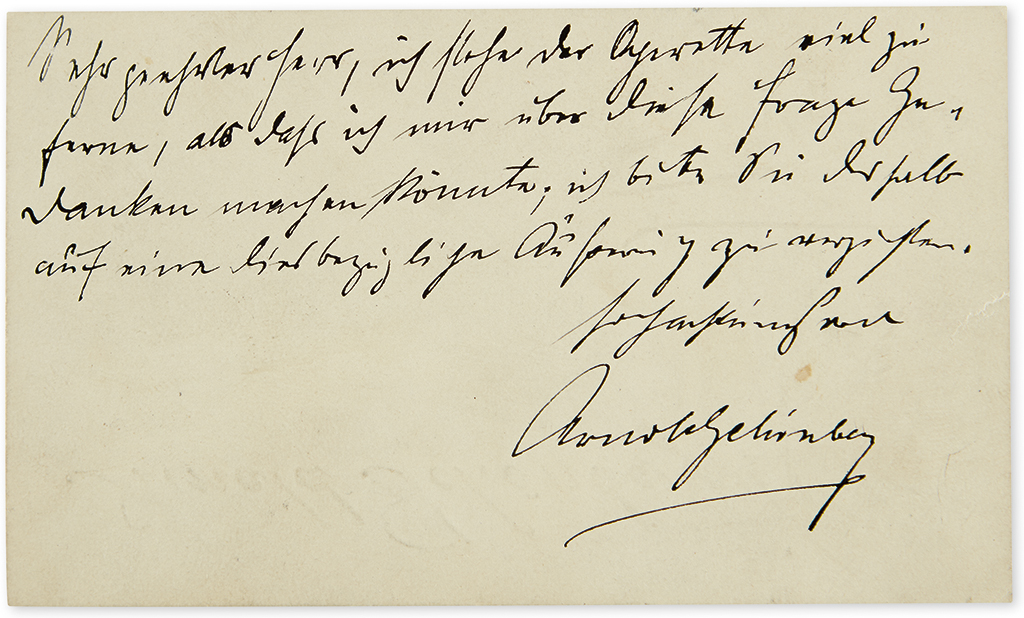 Sehr geehrter Herr, ich stehe der Operette viel zu
ferne, als dass ich mir über diese Frage Ge-
danken machen könnte; ich bitte Sie deshalb
auf eine diesbezügliche Äußerung zu verzichten.
hochachtungsvoll
Arnold Schönberg